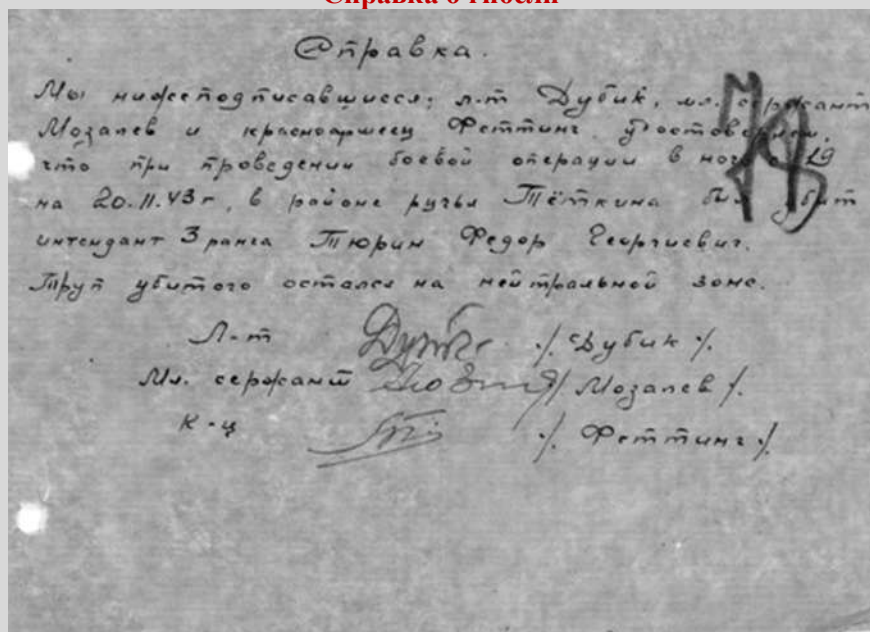 Справка о гибели
Справка.
Мы нижеподписавшиеся; л-т Дубик, мл. сержант
Мозалев и красноармеец Феттинг удостоверяем,
что при проведении боевой операции в ночь с 19
на 20.11.43 г, в районе ручья Тёткина был убит
интендант 3 ранга Тюрин Федор Георгиевич.
Труп убитого остался на нейтральной зоне.
Л-т /. Дубик /.
Мл. сержант /. Мозалев /.
К-ц /. Феттинг /.